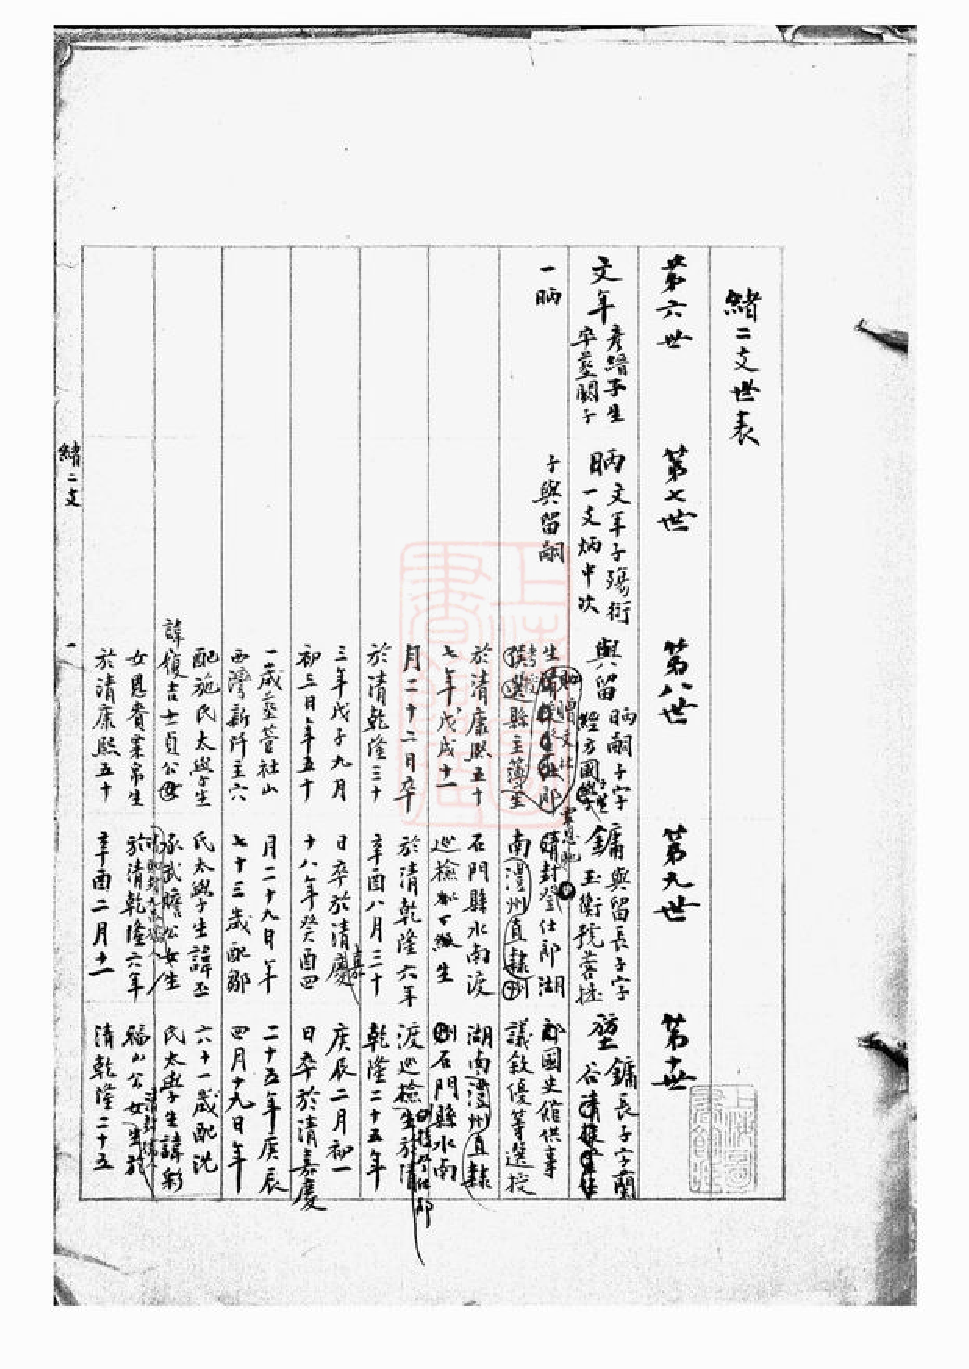 緒二支世表
第六世
文年
彥縉子生
卒塟闕子
一昞
第七世
昞
文年子殤衍
一支炳中次
子與留嗣
第八世
與留
昞嗣子字
選縣主簿
於清康熙五十
七年戊戌十一
月二十二日卒
於清乾隆三十
三年戊子九月
初三日年五十
一歲塟萱社山
西灣新阡主六
配施氏太學生
諱復吉士貞公女
女恩貴業弟生
於清康熙五十
第九世
鏞
與留長子字
玉衡號
封登仕郎湖
南澧州直隸州
石門縣水南渡
巡檢加一級生
於清乾隆六年
辛酉八月三十
日卒於清嘉慶
十八年癸酉四
月二十九日年
七十三歲配鄒
氏太學生諱丕
承武瞻公女生
於清乾隆六年
辛酉二月十一
第十世
鏞長子字蘭
谷
國史館供事
議敘優等選授
湖南澧州直隸
州石門縣水南
渡巡檢生於清
乾隆二十五年
庚辰二月初一
日卒於清嘉慶
二十五年庚辰
四月十九日年
六十一歲配沈
氏太學生諱彩
福山公女生於
清乾隆二十五
緒二支
一
上海圖書館藏